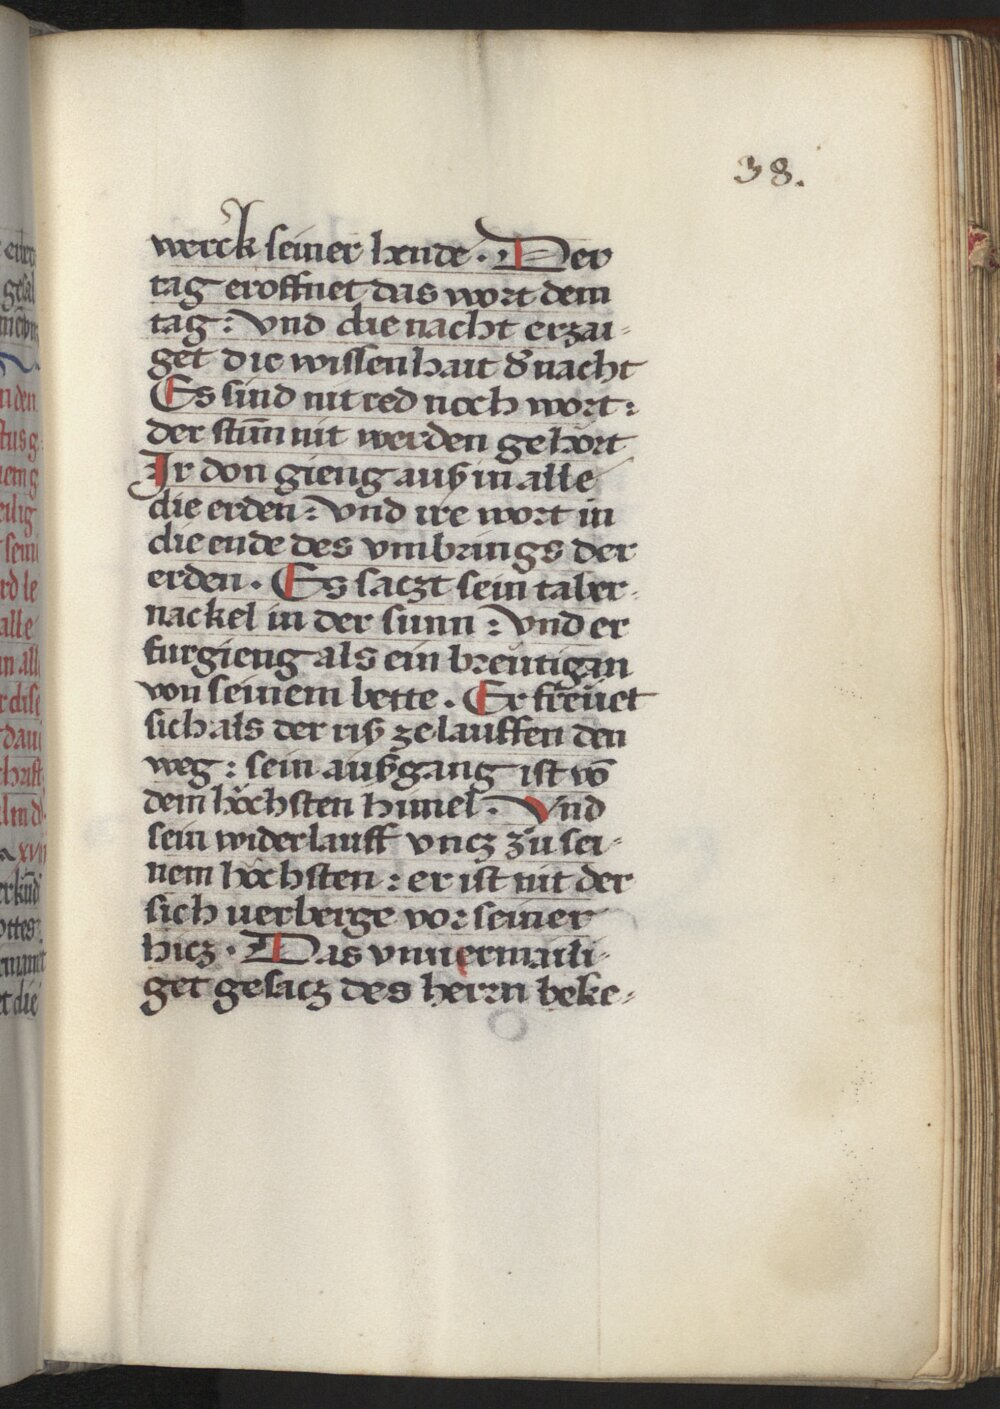 38.
werck seiner hende. Der
tag eroffnet das wort dem
tag: vnd die nacht erzai-
get die wissenhait d' nacht
Es sind nit red noch wort:
der stim̄ nit werden gehort
Ir don gieng auß in alle
die erden: vnd ire wort in
die ende des vmbrings der
erden. Es saczt sein taber-
nackel in der sunn: vnd er
furgieng als ein breütigan
von seinem bette. Er freüet
sich als der riß ze lauffen den
weg: sein außgang ist vō
dem höchsten himel. Vnd
sein widerlauff vncz zů sei-
nem höchsten: er ist nit der
sich uerberge vor seiner
hicz. Das vnuermaili-
get gesacz des herrn beke-